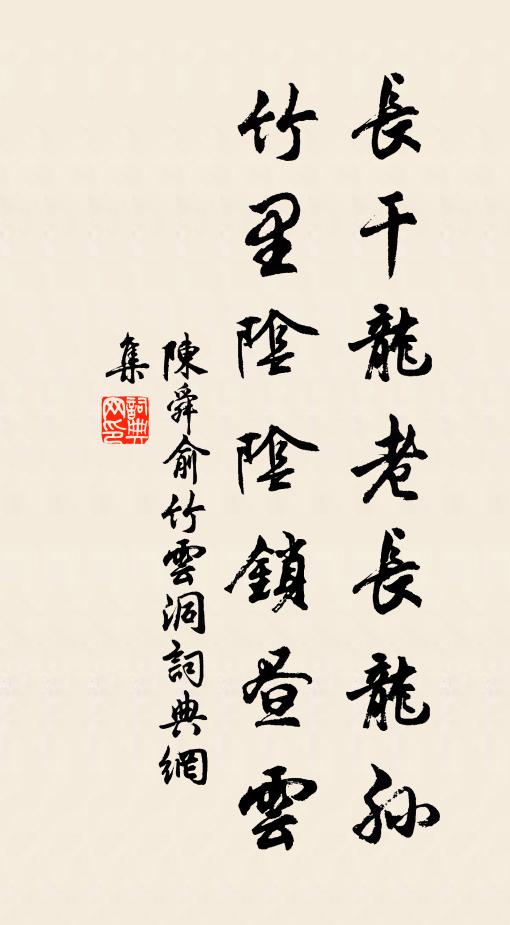 長干龍老長龍孫
竹里陰陰鎖昼雲
陳舜俞竹雲洞詞典網
集
詞典
网印